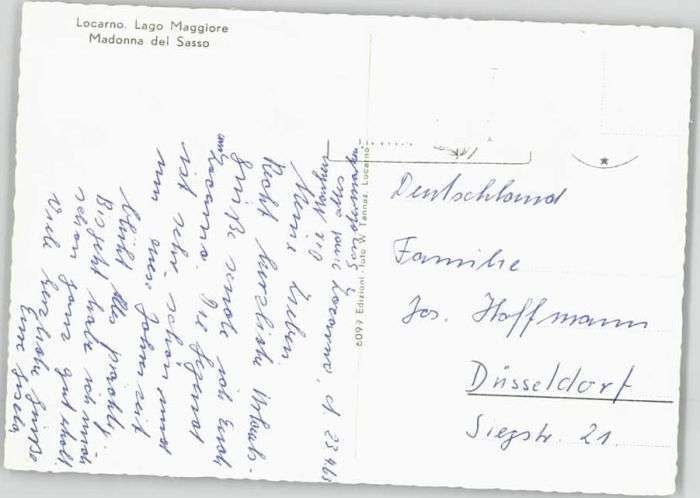 Locarno. Lago Maggiore
Madonna del Sasso
6097 Edizioni Foto W. Tannaz, Locarno
Locarno, d. 23.4.63
Meine Lieben
Recht herzliche Urlaubs-
grüße sende ich Euch
aus Locarno. Die Gegend
ist sehr schön und
nun zur Jahreszeit
blüht alles prächtig.
Bis jetzt habe ich mich
schon ganz gut erholt.
Viele herzliche Grüße
Eure Gisela
Deutschland
Familie
Jos. Hoffmann
Düsseldorf
Siegstr. 21.